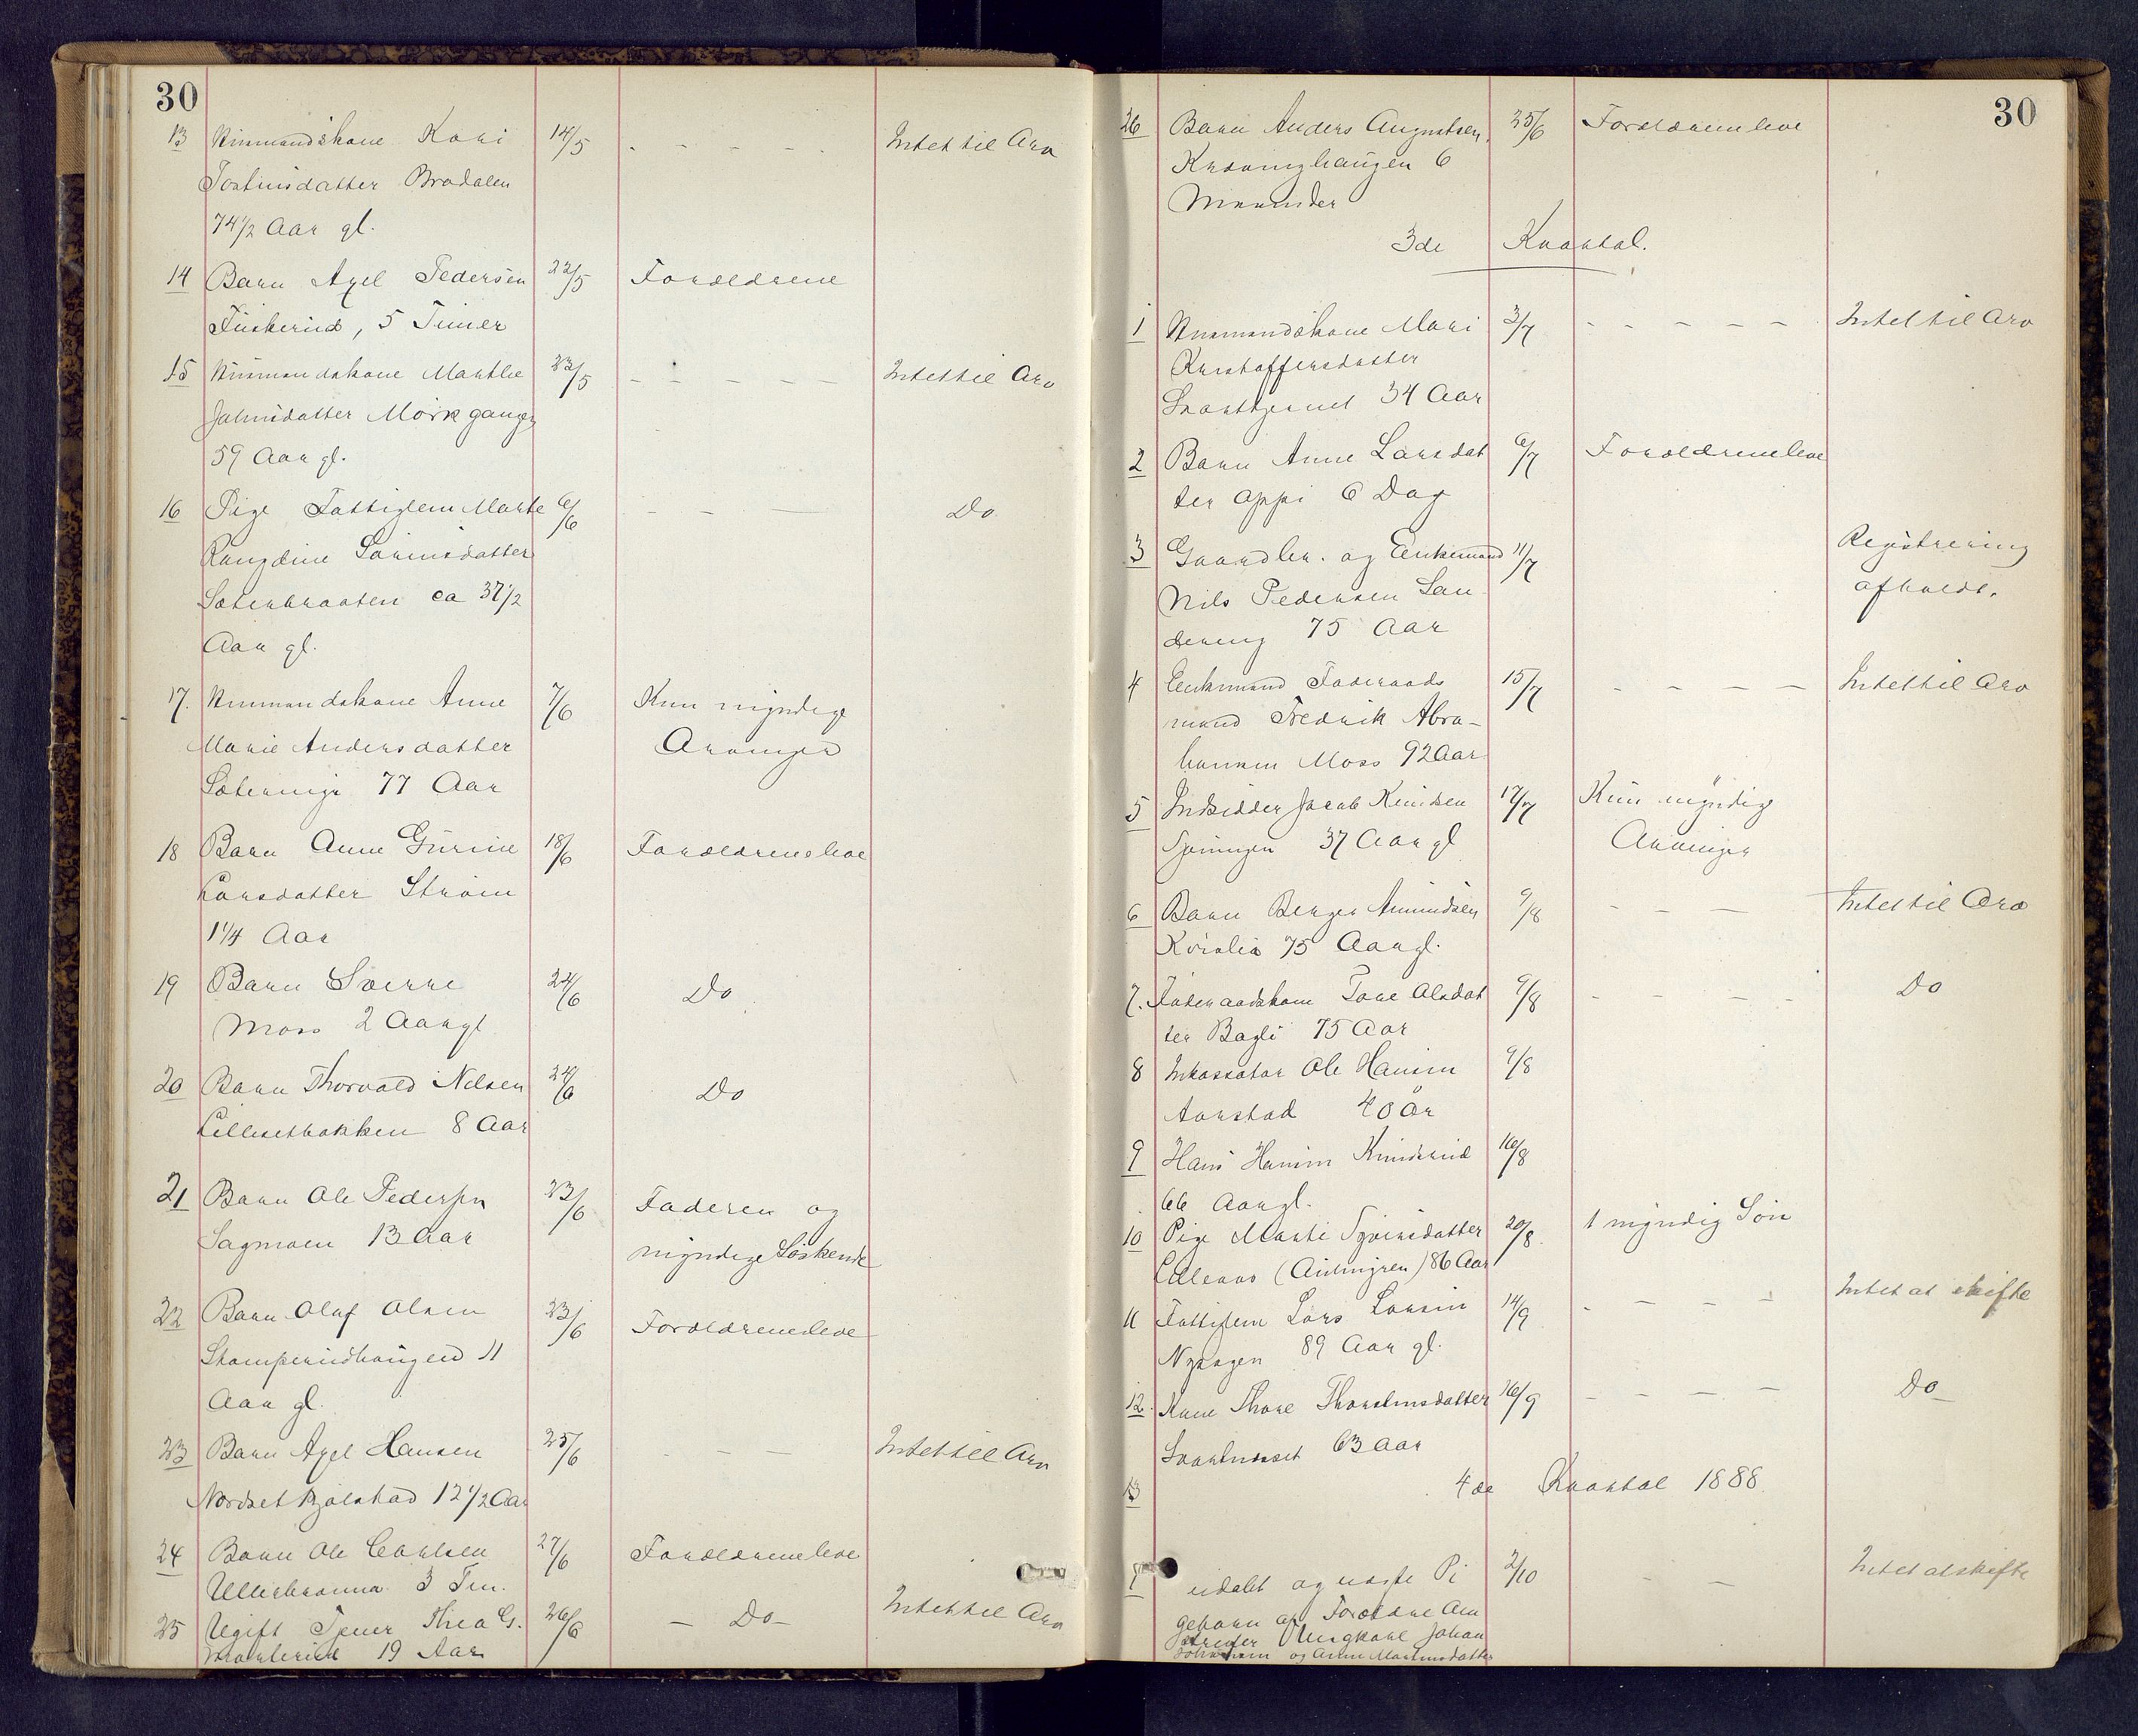 30
13 Huusmandskone Kari 14/5 - - - - - Intet til Arv
Tostinsdatter Bradalen
74 1/2 Aar gl.
14 Barn Axel Pedersen 22/5 Forældrene
Fiskerud, 5 Timer
15 Huusmandskone Marthe 23/5 - - - - - Intet til Arv
Johnsdatter Mörkgangen
59 Aar gl.
16 Pige Fattiglem Marte 6/6 - - - Do
Rangdine Larinsdatter
Sæterbraaten ca 37 1/2
Aar gl.
17. Huusmandskone Anne 7/6 Kun myndige
Marie Andersdatter Arvinger
77 Aar
18 Barn Anne Gurine 18/6 Forældrene leve
Larsdatter Ström
1 1/4 Aar
19 Barn Sverre 24/6 Do
Moss 2 Aar gl
20 Barn Thorvald Nilsen 24/6 Do
Lillesetbakken 8 Aar
21 Barn Ole Pedersen 23/6 Faderen og
Sagmoen 13 Aar myndige Söskende
22 Barn Olaf Olsen 23/6 Forældrene leve
Stamperudhaugen 11
Aar gl.
23 Barn Axel Hansen 25/6 - - - Intet til Arv
Nordset Bjölstad 12 1/2 Aar
24 Barn Ole Carlsen 27/6 Forældrene leve
3 Tim.
25 Ugift Thea G. 26/6 - Do - Intet til Arv
19 Aar
30
26 Barn Anders Augustsen 25/6 Forældrene leve
6
Maaneder
3de Kvartal.
1 Huusmandskone Mari 3/7 - - - - - Intet til Arv
Kristoffersdatter
Svarttjernet 34 Aar
2 Barn Anne Larsdat 6/7 Forældrene leve
ter Oppi 6 Dag
3 Gaardbr. og Enkemand 11/7 Registrering
Nils Pedersen Lan afholdt.
dereng 75 Aar
4 Enkemand Föderaads 15/7 - - - - Intet til Arv
mand Fredrik Abra-
hamsen Moss 92 Aar
5 Indsidder Jacob Knudsen 17/7 Kun myndige
37 Aar gl Arvinger
6 Barn Berger Amundsen 9/8 - - - Intet til Arv
75 Aar gl.
7. Föderaadskone Tore Olsdat 9/8 - - - - Do
ter Bagli 75 Aar
8 Inkassator Ole Hansen 9/8
Aarstad 40 År
9 Hans Hansen Knudsrud 16/8
66 Aar gl.
10 Pige Marthe 20/8 1 myndig Sön
Lilleaas 86 Aar
11 Fattiglem Lars Larsen 14/9 - - - - Intet at skifte
89 Aar gl.
12. Kone Thore Thorstensdatter 16/9 - - - - Do
63 Aar
13 4de Kvartal 1888.
1 udöbt og næste Pi 2/10 - - Intet at skifte
gebarn af Forældre Ar
beider Ungkarl Johan
og Anne Martinsdatter